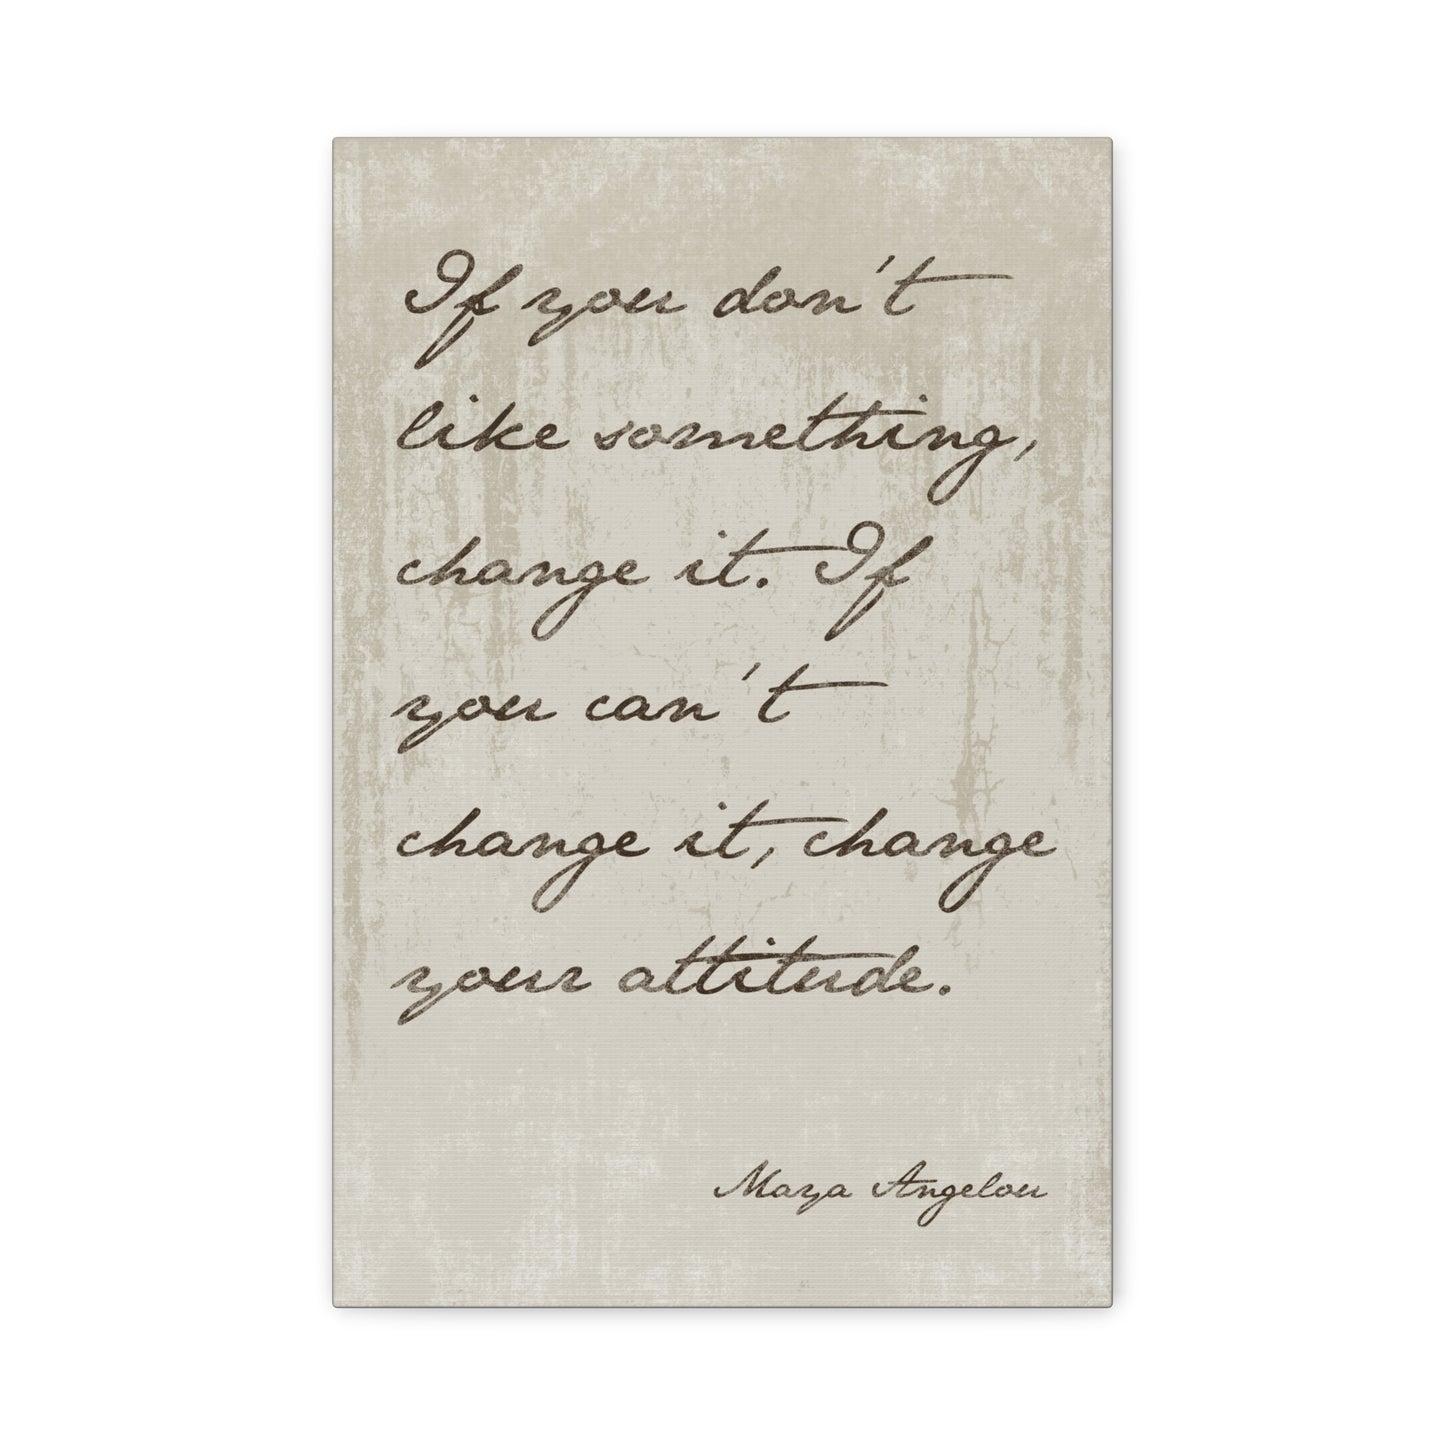 If you don't
like something,
change it. If
you can't
change it, change
your attitude.
Maya Angelou